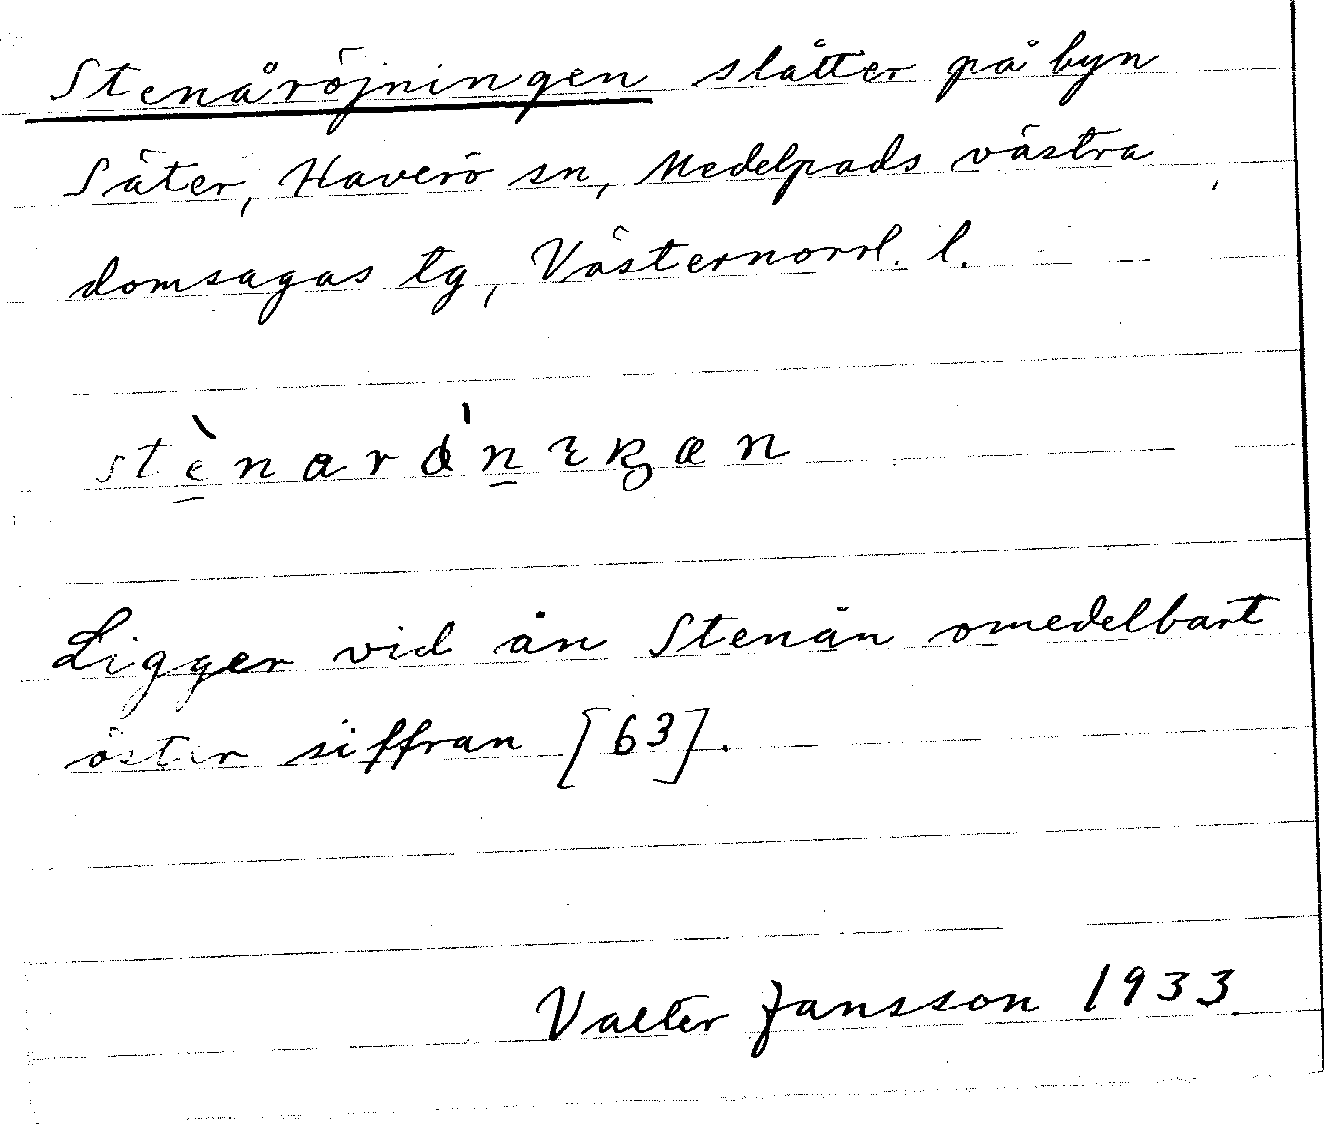 Stenåröjningen slåtter på byn
Säter, Haverö sn, Medelpads västra
domsagas tg, Västernorrl. l.
Ligger vid ån Stenån omedelbart
öster siffran [63].
Valter Jansson 1933.